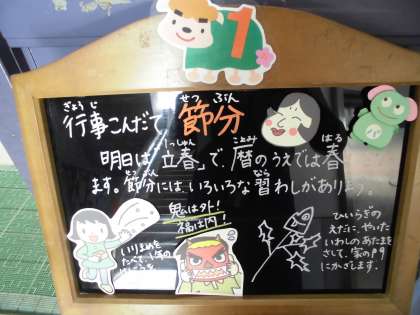 1
ぎょうじ せつ ぶん
行事こんだて 節分
いっしゅん こよみ はる
明日は「立春」で、暦のうえでは春
せつ ぶん なら
ます。節分には、いろいろな習わしがありよう。
鬼は外!
福は内!
いりまめを
たべて、1年の
ひいらぎの
えだに、やいた
いわしのあたまを
さして、家の門
にかざします。